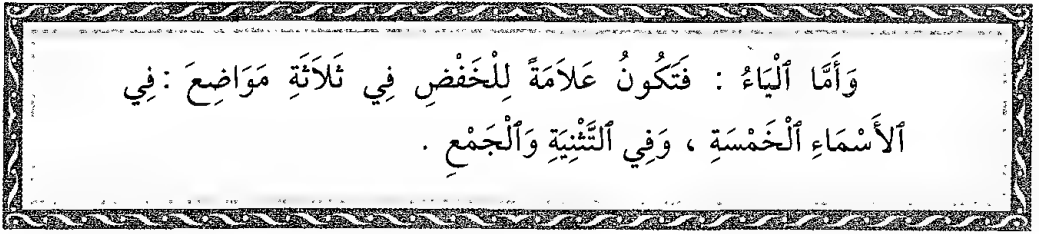 وَأَمَّا ٱلْيَاءُ : فَتَكُونُ عَلاَمَةً لِلْخَفْضِ فِي ثَلاَثَةِ مَوَاضِعَ : فِي
ٱلأَسْمَاءِ ٱلْخَمْسَةِ ، وَفِي ٱلتَّثْنِيَةِ وَٱلْجَمْعِ .